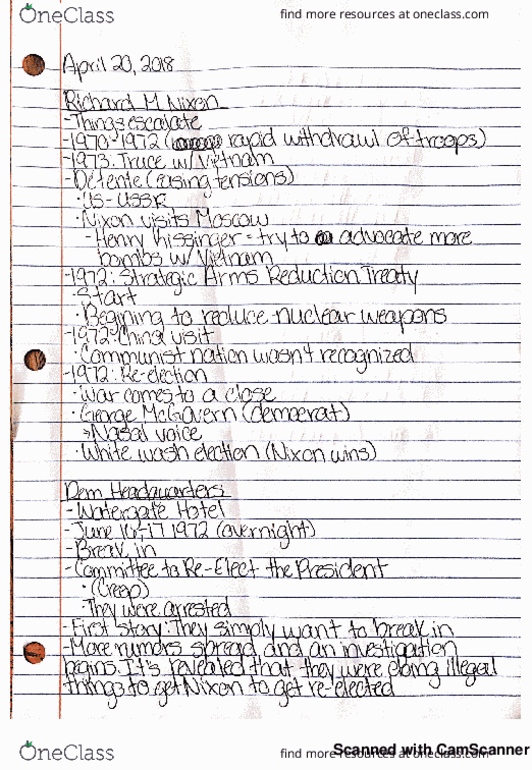 OneClass
find more resources at oneclass.com
April 20, 2018
Richard M Nixon
-Things escalate
-1970-1972 ( rapid withdrawl of troops)
-1973: Truce w/ Vietnam
-Detente (easing tensions)
·US-USSR
·Nixon visits Moscow
-Henry Kissinger = try to advocate more
bombs w/ Vietnam
-1972: Strategic Arms Reduction Treaty
·Start
·Begining to reduce nuclear weapons
-1972: China visit
·Communist nation wasn't recognized
-1972: Re-election
·War comes to a close
·George McGovern (democrat)
↳Nasal voice
·White wash election (Nixon wins)
Dem Headquarters
-Watergate Hotel
-June 16-17 1972 (overnight)
-Break in
-Committee to Re-Elect the President
·(Creep)
·They were arrested
-First story: They simply want to break in
-More rumors spread and an investigation
begins. It's revealed that they were doing illegal
things to get Nixon to get re-elected
OneClass
find more resources at oneclass.com
Scanned with CamScanner